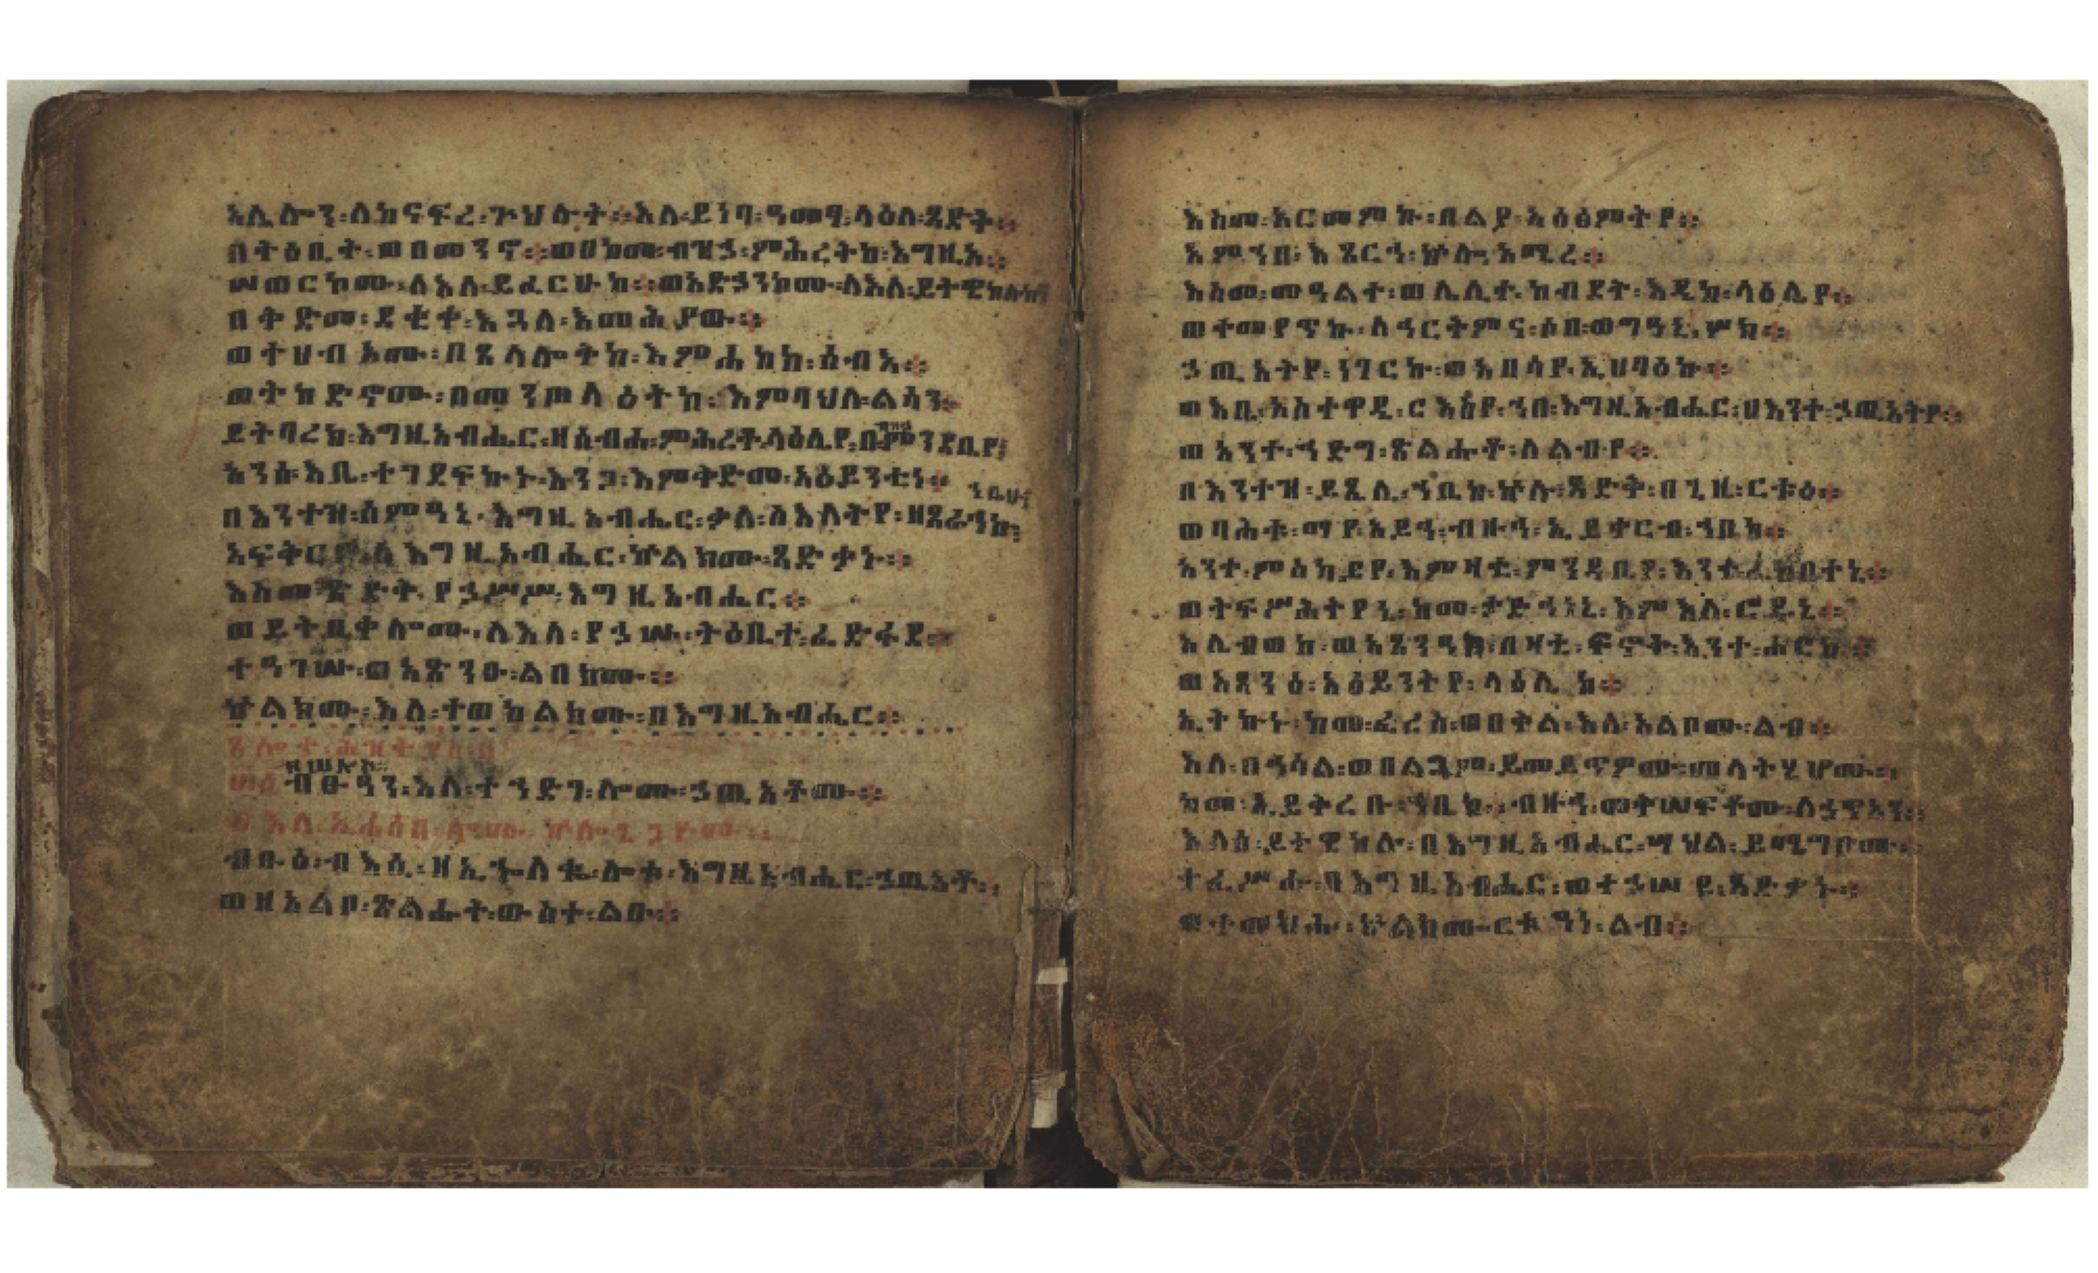 አሌሎን፡ለከናፍረ፡ጕህሉት፨እለ፡ይነባ፡ዓመፃ፡ላዕለ፡ጻድቅ፨
በትዕቢት፡ወበመንኖ፨ወበከመ፡ብዝኃ፡ምሕረትከ፡እግዚኦ፨
ሠወርኮሙ፡ለእለ፡ይፈርሁከ፨ወአድኃንኮሙ፡ለእለ፡ይትዌከሉከ
በቅድመ፡ደቂቀ፡እጓለ፡እመሕያው፨
ወተሀብኦሙ፡በጽላሎትከ፡እምሐከከ፡ሰብእ፨
ወትከድኖሙ፡በመንጦላዕትከ፡እምባህለ፡ልሳን፨
ይትባረክ፡እግዚአብሔር፡ዘሰብሐ፡ምሕረቶ፡ላዕሌየ፡
አንሰ፡እቤ፡ተገደፍኩኑ፡እንጋ፡እምቅድመ፡አዕይንቲነ፨
በእንተዝ፡ሰምዓኒ፡እግዚአብሔር፡ቃለ፡ስእለትየ፡ዘጸራኅኩ፡ኀቤሁ፤
አፍቅርዎ፡ለእግዚአብሔር፡ኵልክሙ፡ጻድቃኑ፨
እስመ፡ጽድቀ፡የኃሥሥ፡እግዚአብሔር፨
ወይትቤቀሎሙ፡ለእለ፡የኃሡ፡ትዕቢተ፡ፈድፋደ፨
ተዓገሡ፡ወአጽንዑ፡ልበክሙ፨
ኵልክሙ፡እለ፡ተወከልክሙ፡በእግዚአብሔር፨
ብፁዓን፡እለ፡ተኀድገ፡ሎሙ፡ኃጢአቶሙ፨
ወእለ፡ኢሐሰበ፡ሎሙ፡ኵሎ፡ጌጋዮሙ፨
ብፁዕ፡ብእሲ፡ዘኢኈለቈ፡ሎቱ፡እግዚአብሔር፡ኃጢአቶ፨
ወዘአልቦ፡ጽልሑት፡ውስተ፡ልቡ፨
እስመ፡አርመምኩ፡በልያ፡አዕፅምትየ፨
እምኀበ፡እጸርኅ፡ኵሎ፡አሚረ፨
እስመ፡መዓልተ፡ወሌሊተ፡ከብደት፡እዴከ፡ላዕሌየ፨
ወተመየጥኩ፡ለኃርትምና፡ሶበ፡ወግዓኒ፡ሦክ፨
ኃጢአትየ፡ነገርኩ፡ወአበሳየ፡ኢሀባዕኩ፨
ወእቤ፡አስተዋዲ፡ርእስየ፡ኀበ፡እግዚአብሔር፡በእንተ፡ኃጢአትየ፨
ወአንተ፡ኀድግ፡ጽልሑቶ፡ለልብየ፨
በእንተዝ፡ይጼሊ፡ኀቤከ፡ኵሉ፡ጻድቅ፡በጊዜ፡ርቱዕ፨
ወባሕቱ፡ማየ፡አይኅ፡ብዙኅ፡ኢይቀርብ፡ኀቤከ፨
አንተ፡ምስካይየ፡እምዛቲ፡ምንዳቤየ፡እንተ፡ረከበተኒ፨
ወትፍሥሕትየኒ፡ከመ፡ታድኅነኒ፡እምእለ፡ሮዱኒ፨
አሌብወከ፡ወአጸንዓከ፡በዛቲ፡ፍኖት፡እንተ፡ሖርከ፨
ወአጸንዕ፡አዕይንትየ፡ላዕሌከ፨
ኢትኩኑ፡ከመ፡ፈረስ፡ወበቅል፡እለ፡አልቦሙ፡ልብ፨
እለ፡በኃሳል፡ወበልጓም፡ይመይጥዎሙ፡መላትሂሆሙ፨
ከመ፡ኢይቅረቡ፡ኀቤከ፨ብዙኅ፡መቅሠፍቶሙ፡ለኃጥአን፨
እለሰ፡ይትዌከሉ፡በእግዚአብሔር፡ሣህል፡ይሜግቦሙ፨
ተፈሥሑ፡በእግዚአብሔር፡ወተኃሠዩ፡ጻድቃኑ፨
ወተመክሑ፡ኵልክሙ፡ርቱዓነ፡ልብ፨